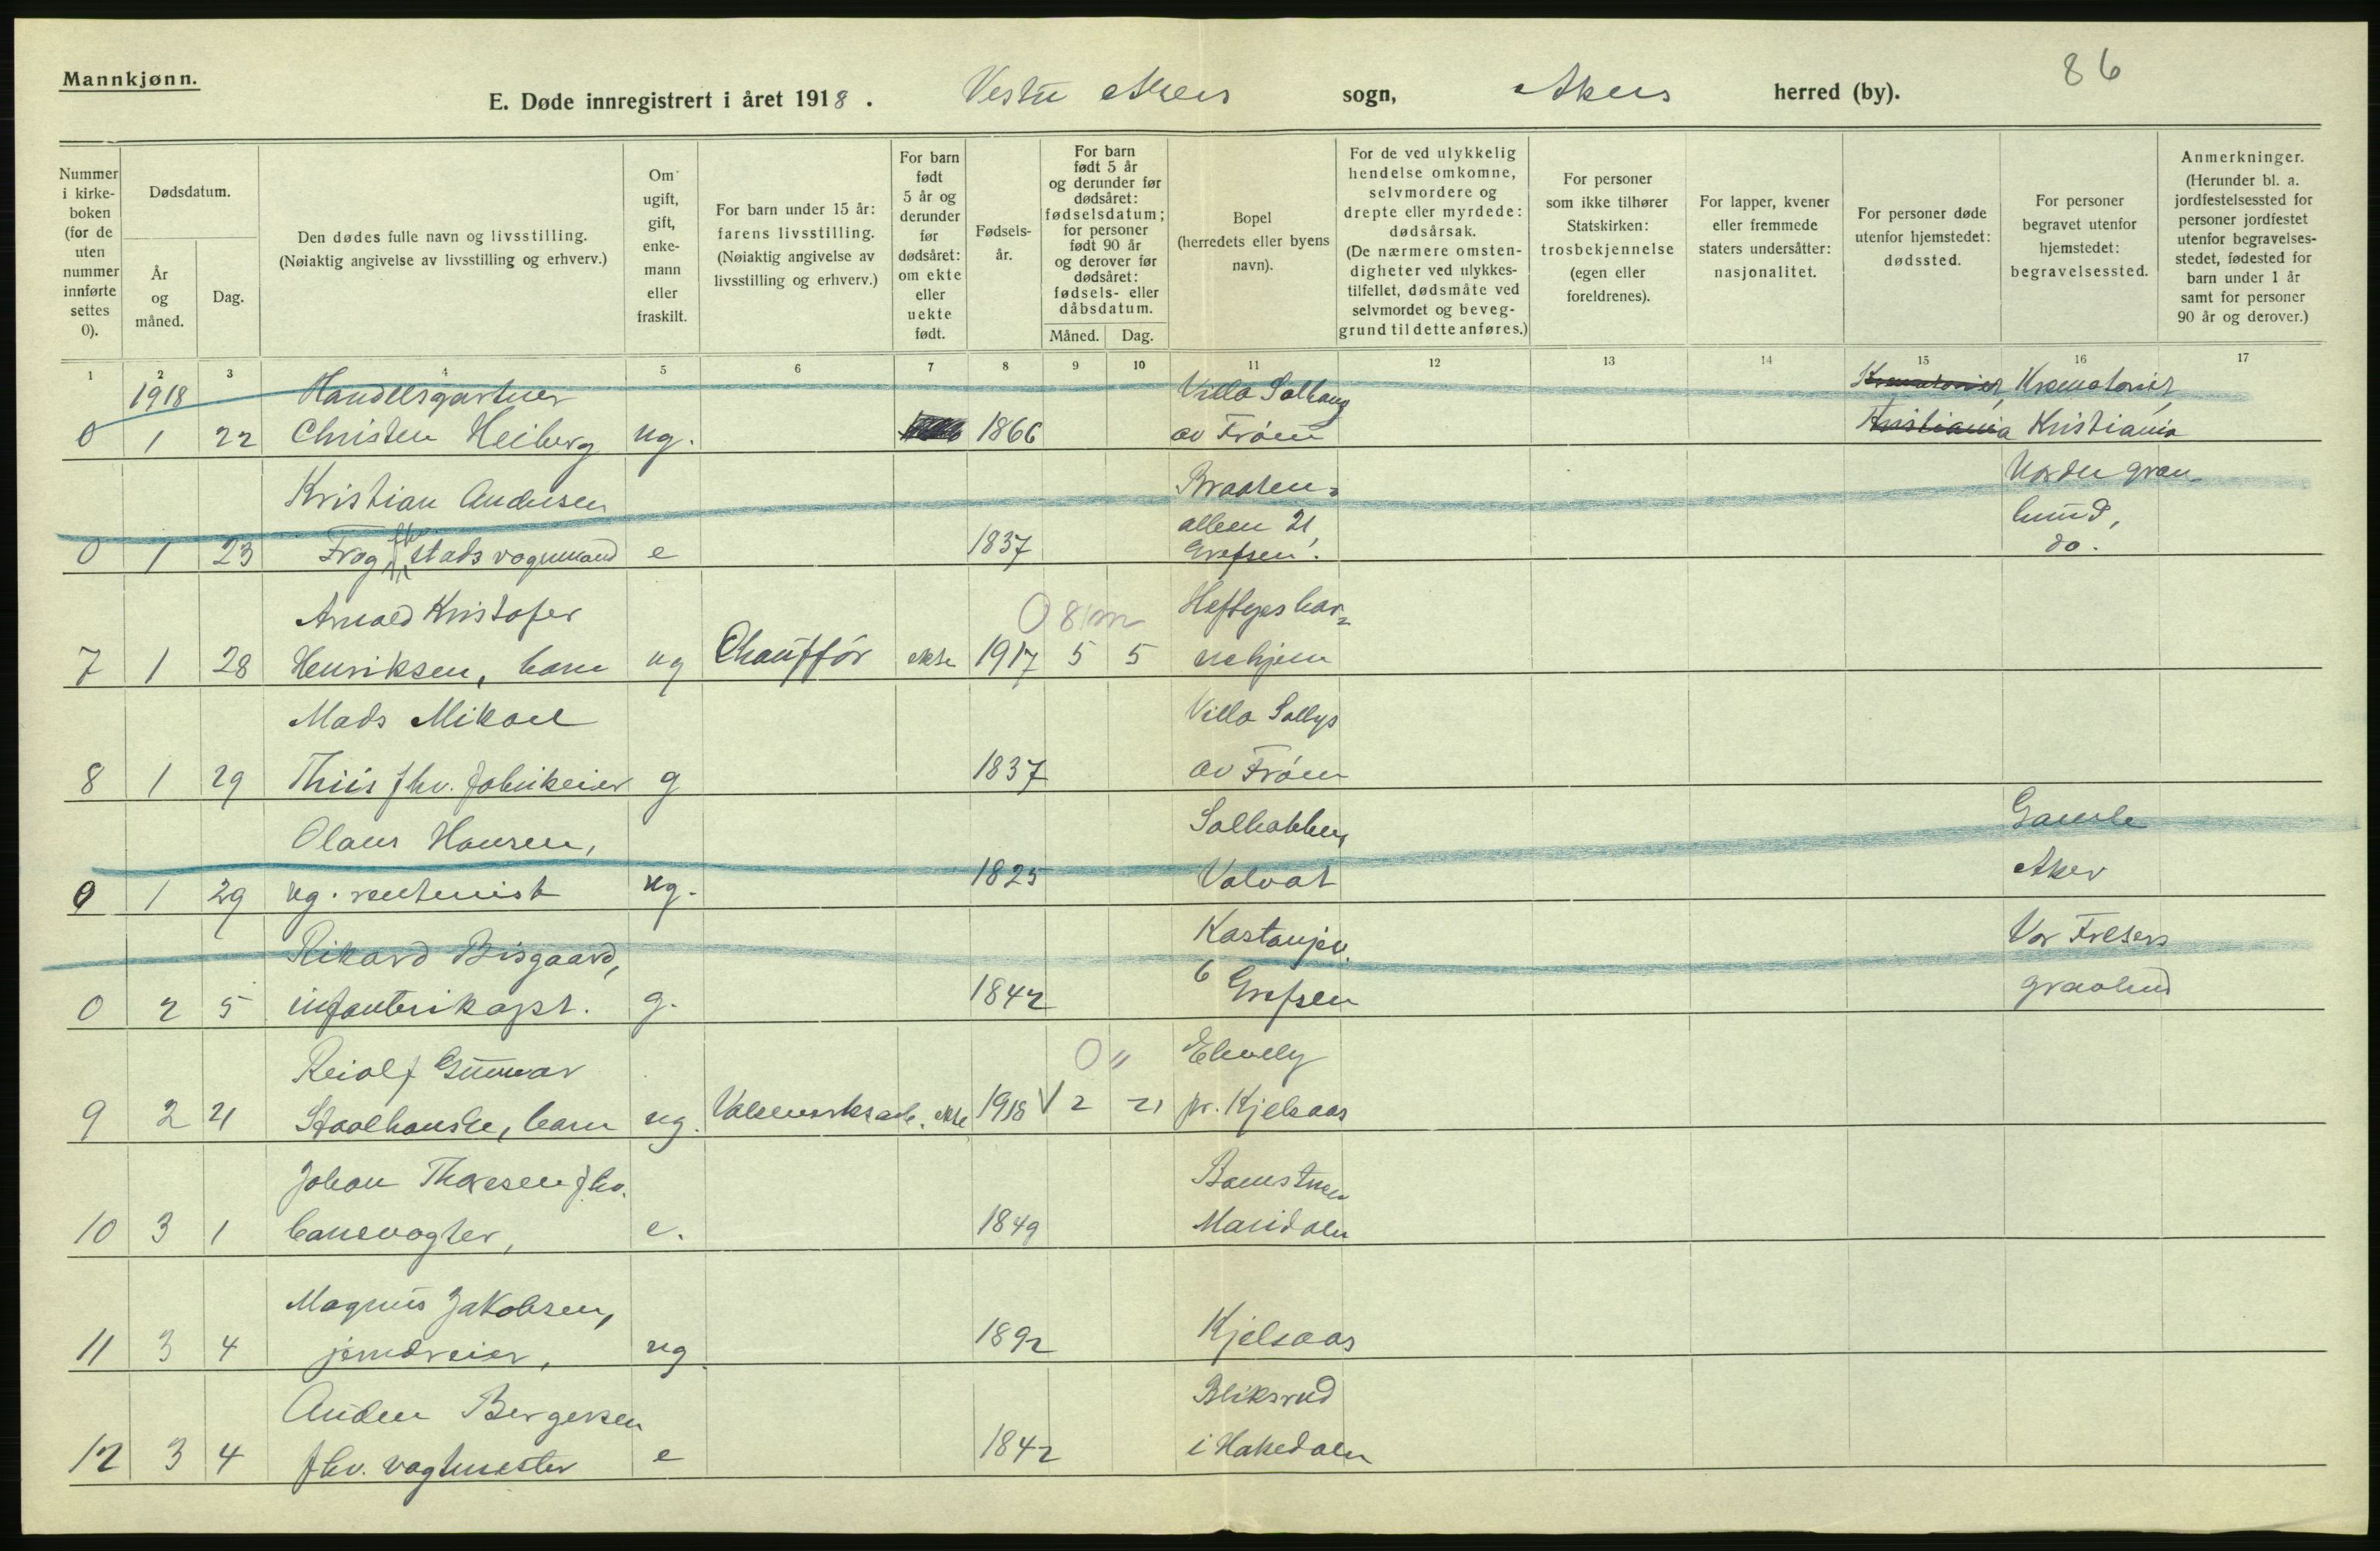 Mannkjønn.
E. Døde innregistrert i året 1918. Vestre Akers sogn, Akers herred (by).
86
Nummer i kirkeboken (for de uten nummer innførte settes 0).
Dødsdatum.
År og måned.
Dag.
Den dødes fulle navn og livsstilling.
(Nøiaktig angivelse av livsstilling og erhverv.)
Om ugift, gift, enkemann eller fraskilt.
For barn under 15 år: farens livsstilling.
(Nøiaktig angivelse av livsstilling og erhverv.)
For barn født 5 år og derunder før dødsåret: om ekte eller uekte født.
Fødselsår.
For barn født 5 år og derunder før dødsåret: fødselsdatum; for personer født 90 år og derover før dødsåret: fødsels- eller dåbsdatum.
Måned.
Dag.
Bopel
(herredets eller byens navn).
For de ved ulykkelig hendelse omkomne, selvmordere og drepte eller myrdede: dødsårsak.
(De nærmere omstendigheter ved ulykkestilfellet, dødsmåte ved selvmordet og beveggrund til dette anføres.)
For personer som ikke tilhører Statskirken: trosbekjennelse (egen eller foreldrenes).
For lapper, kvener eller fremmede staters undersåtter: nasjonalitet.
For personer døde utenfor hjemstedet: dødssted.
For personer begravet utenfor hjemstedet: begravelsessted.
Anmerkninger.
(Herunder bl. a. jordfestelsessted for personer jordfestet utenfor begravelsesstedet, fødested for barn under 1 år samt for personer 90 år og derover.)
1 2 3 4 5 6 7 8 9 10 11 12 13 14 15 16 17
1918 Handelsgartner Villa Solhaug Krematoriet, Krematoriet,
0 1 22 Christen Heiberg ug. 1866 av Frøen Kristiania Kristiania
Kristian Andersen Braaten- Nordre grav-
alleen 21, lund,
0 1 23 Frog stads vognmand e 1837 Grefsen. do.
Arnold Kristofer 0 8 m Heftyes bar-
7 1 28 Henriksen, barn ug Chauffør ekte 1917 5 5 nehjem
Mads Mikael Villa Sollys
8 1 29 Thiis fhv. fabrikeier g 1837 av Frøen
Olaus Hansen, Solbakken, Gamle
0 1 29 ug. rentenist ug. 1825 Volvat Aker
Rikard Bisgaard, Kastanjev. Vor Frelsers
0 2 5 infanterikapt. g. 1842 6 Grefsen gravlund
Reiolf Gunnar 0 " Elvely
9 2 21 barn ug. Valseverksarb. ekte 1918 V 2 21 pr. Kjelsaas
Johan Thoresen fhv.
10 3 1 banevogter, e. 1849 Maridalen
Magnus Jakobsen,
11 3 4 ug. 1892 Kjelsaas
Anders Bergersen Bliksrud
12 3 4 fhv. vagtmester e 1842 i Hakedalen